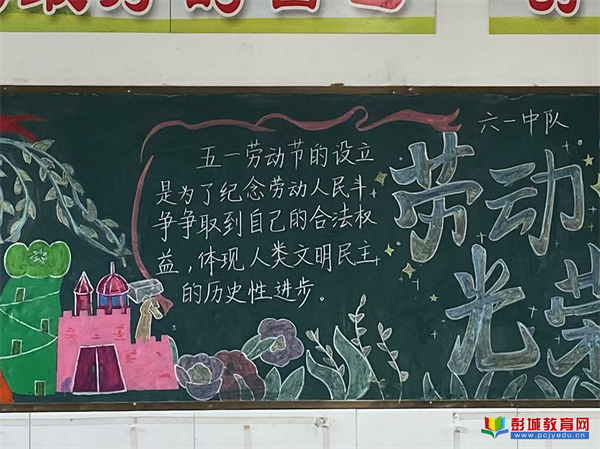 六一中队
五一劳动节的设立
是为了纪念劳动人民斗
争争取到自己的合法权
益，体现人类文明民主
的历史性进步。
劳动
光荣
彭城教育网
www.pcjyedu.cn